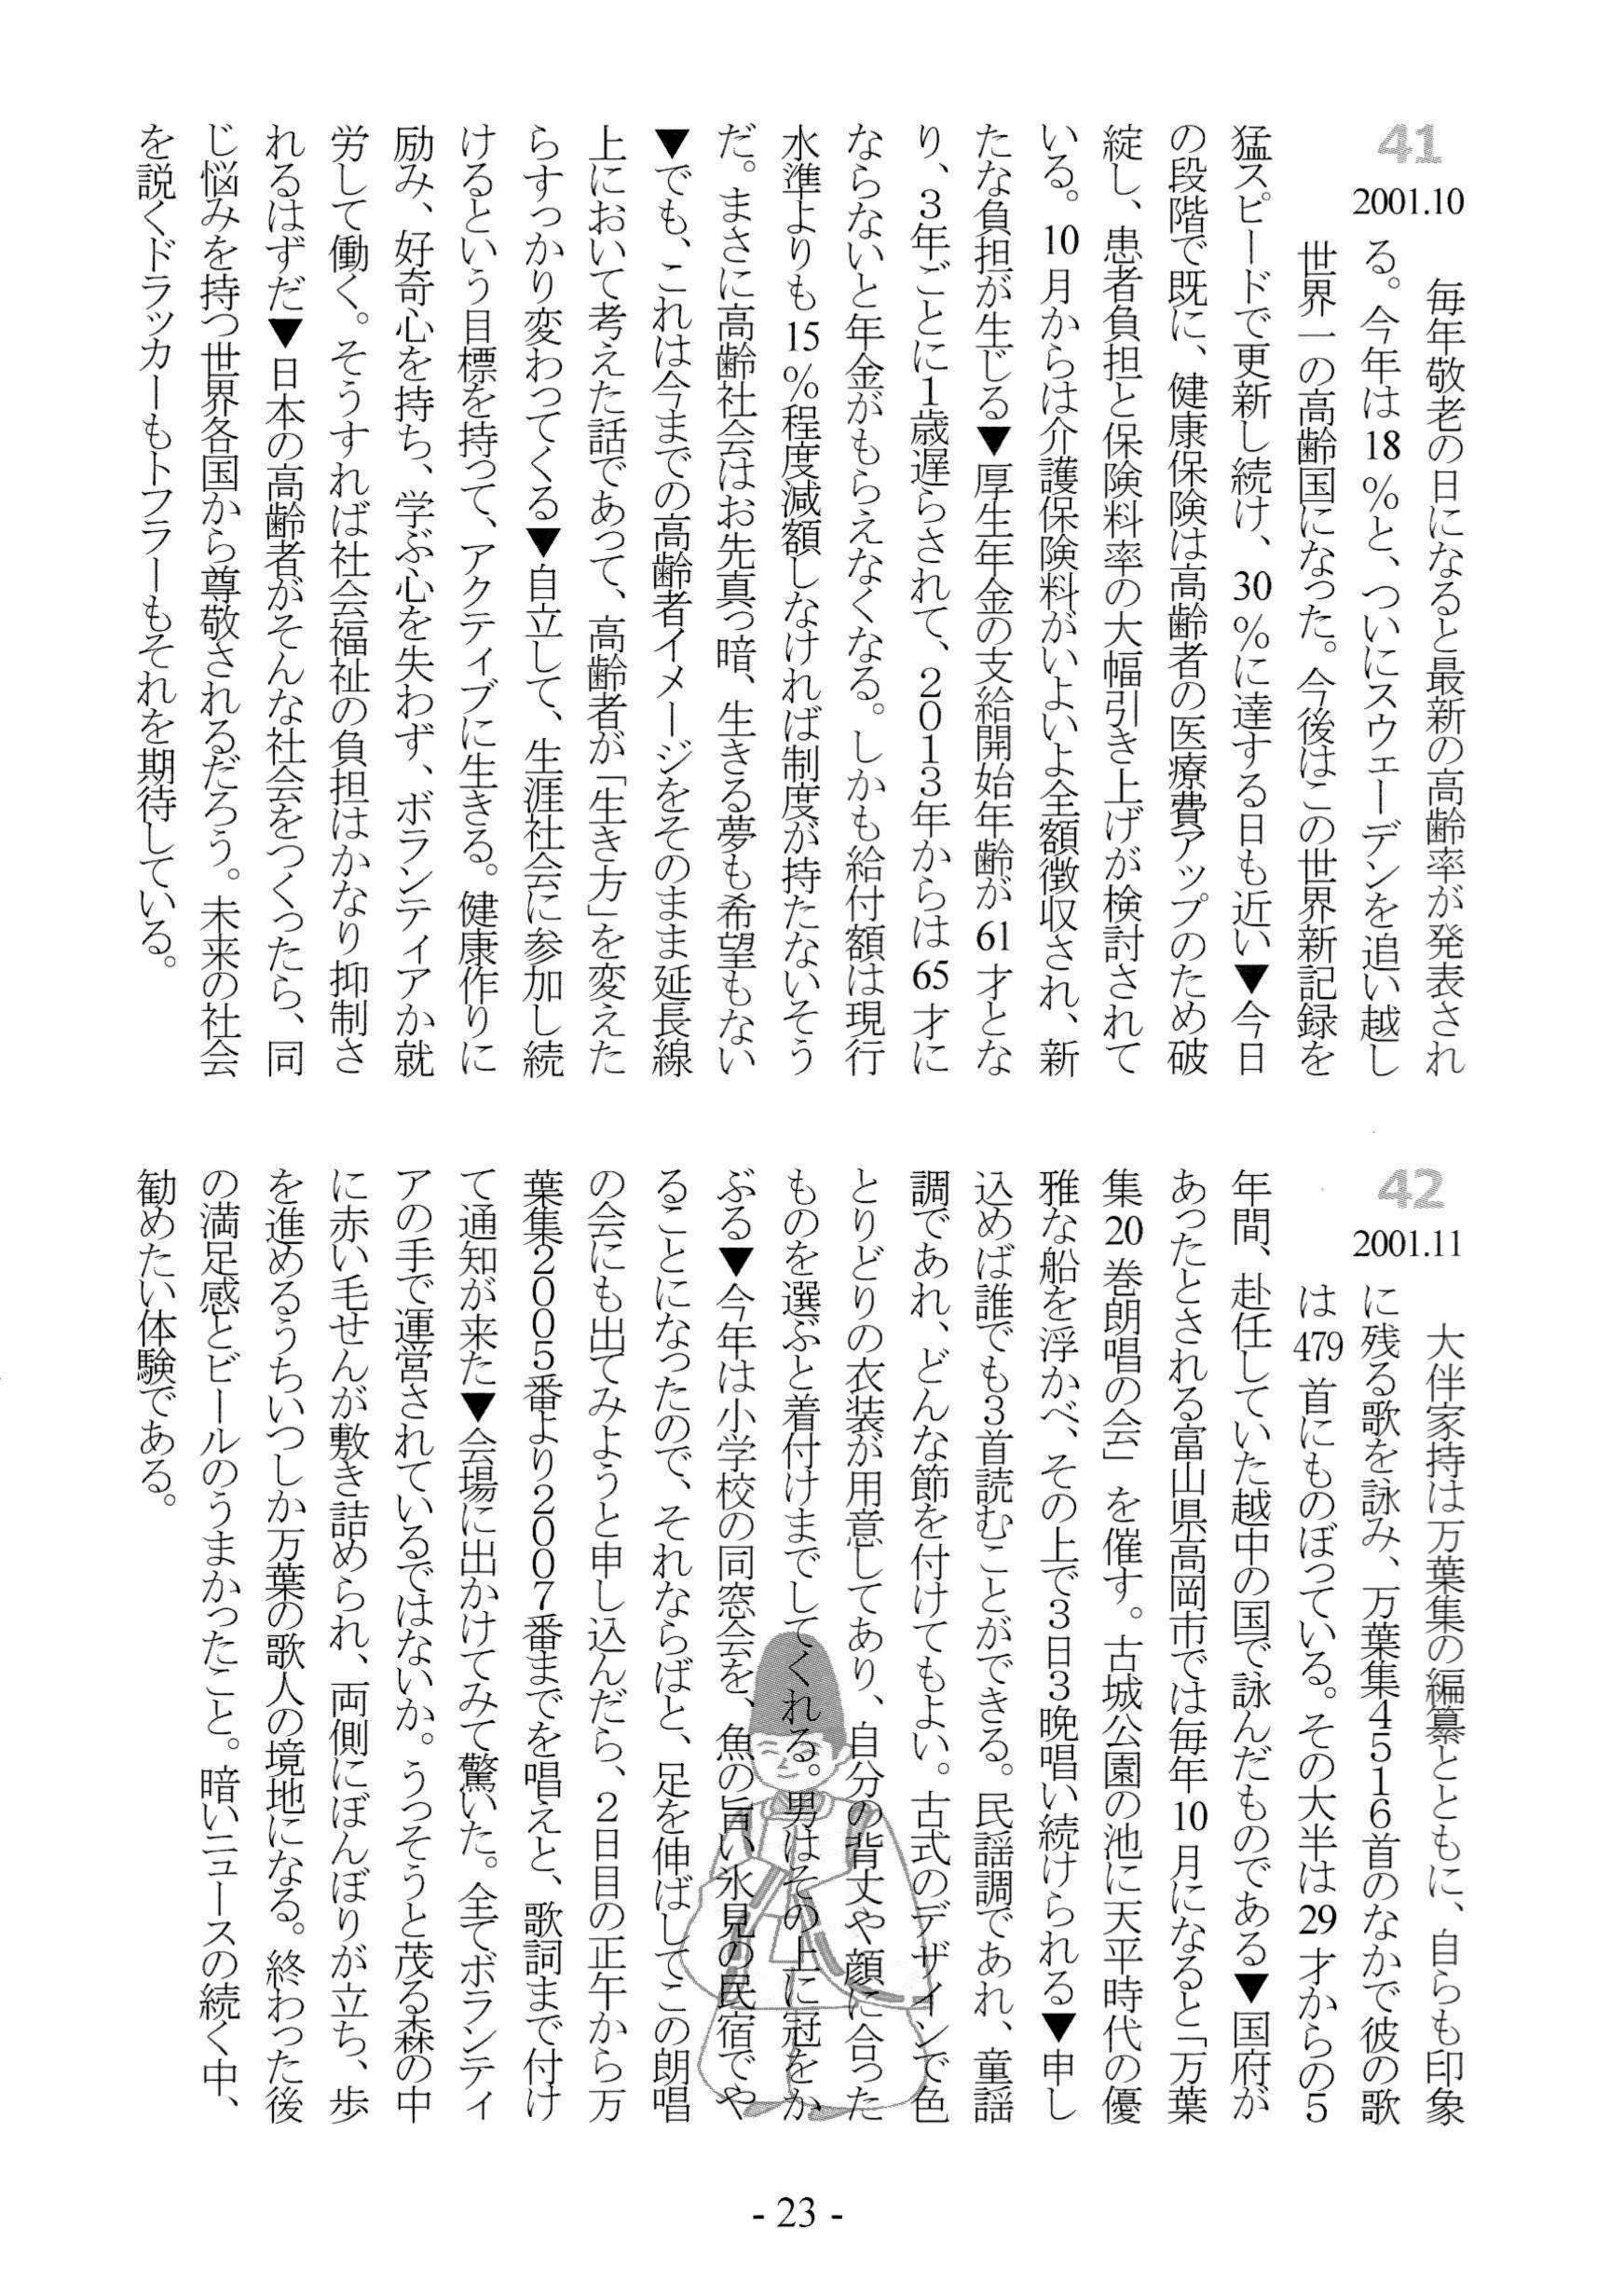 41
2001.10
毎年敬老の日になると最新の高齢率が発表され
る。今年は18%と、ついにスウェーデンを追い越し
世界一の高齢国になった。今後はこの世界新記録を
猛スピードで更新し続け、30%に達する日も近い▼今日
の段階で既に、健康保険は高齢者の医療費アップのため破
綻し、患者負担と保険料率の大幅引き上げが検討されて
いる。10月からは介護保険料がいよいよ全額徴収され、新
たな負担が生じる▼厚生年金の支給開始年齢が61才とな
り、3年ごとに1歳遅らされて、2013年からは65才に
ならないと年金がもらえなくなる。しかも給付額は現行
水準よりも15%程度減額しなければ制度が持たないそう
だ。まさに高齢社会はお先真っ暗、生きる夢も希望もない
▼でも、これは今までの高齢者イメージをそのまま延長線
上において考えた話であって、高齢者が「生き方」を変えた
らすっかり変わってくる▼自立して、生涯社会に参加し続
けるという目標を持って、アクティブに生きる。健康作りに
励み、好奇心を持ち、学ぶ心を失わず、ボランティアか就
労して働く。そうすれば社会福祉の負担はかなり抑制さ
れるはずだ▼日本の高齢者がそんな社会をつくったら、同
じ悩みを持つ世界各国から尊敬されるだろう。未来の社会
を説くドラッカーもトフラーもそれを期待している。
42
2001.11
大伴家持は万葉集の編纂とともに、自らも印象
に残る歌を詠み、万葉集4516首のなかで彼の歌
は479首にものぼっている。その大半は29才からの5
年間、赴任していた越中の国で詠んだものである▼国府が
あったとされる富山県高岡市では毎年10月になると「万葉
集20巻朗唱の会」を催す。古城公園の池に天平時代の優
雅な船を浮かべ、その上で3日3晩唱い続けられる▼申し
込めば誰でも3首読むことができる。民謡調であれ、童謡
調であれ、どんな節を付けてもよい。古式のデザインで色
とりどりの衣装が用意してあり、自分の背丈や顔に合った
ものを選ぶと着付けまでしてくれる。男はその上に冠をか
ぶる▼今年は小学校の同窓会を、魚の旨い氷見の民宿でや
ることになったので、それならばと、足を伸ばしてこの朗唱
の会にも出てみようと申し込んだら、2日目の正午から万
葉集2005番より2007番までを唱えと、歌詞まで付け
て通知が来た▼会場に出かけてみて驚いた。全てボランティ
アの手で運営されているではないか。うっそうと茂る森の中
に赤い毛せんが敷き詰められ、両側にぼんぼりが立ち、歩
を進めるうちいつしか万葉の歌人の境地になる。終わった後
の満足感とビールのうまかったこと。暗いニュースの続く中、
勧めたい体験である。
- 23 -